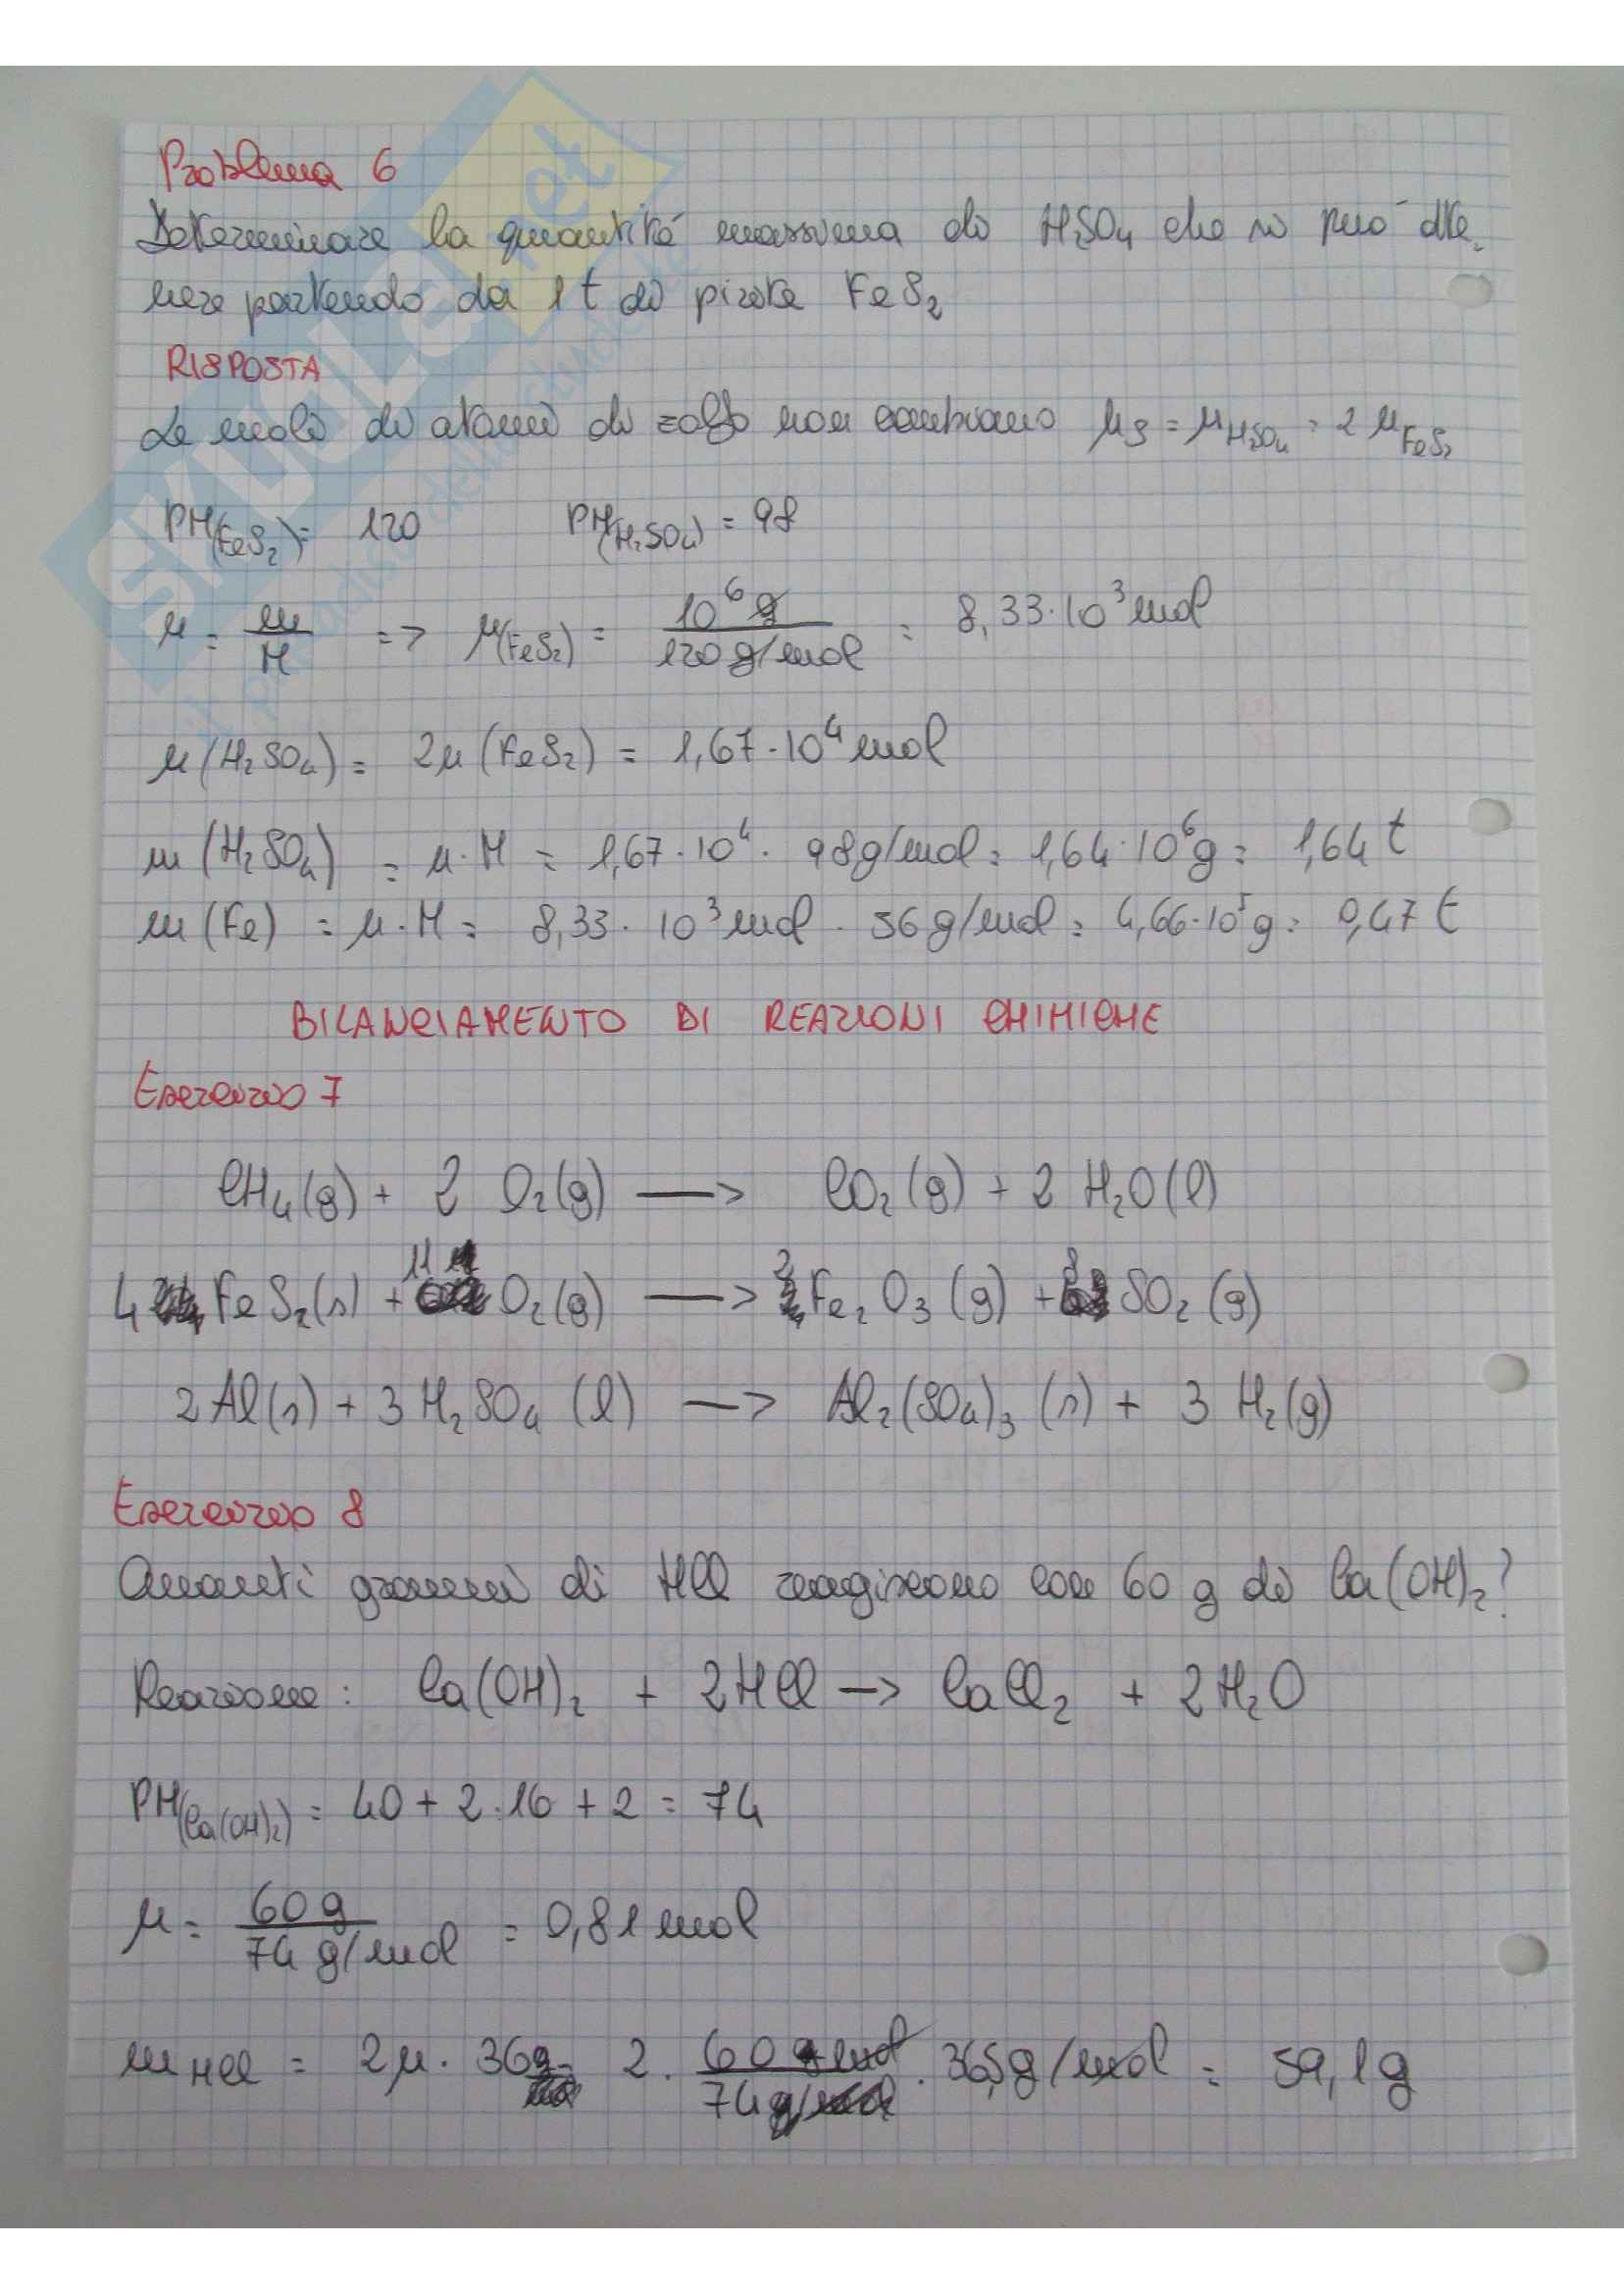 Problema 6
Determinare la quantità massima di H₂SO₄ che si può otte-
nere partendo da 1 t di pirite FeS₂
RISPOSTA
Le moli di atomi di zolfo non cambiano n_S = n_H₂SO₄ = 2 n_FeS₂
PM(FeS₂) = 120 PM(H₂SO₄) = 98
n = m/M => n(FeS₂) = 10⁶ g / 120 g/mol = 8,33·10³ mol
n (H₂SO₄) = 2n (FeS₂) = 1,67·10⁴ mol
m (H₂SO₄) = n·M = 1,67·10⁴ · 98 g/mol = 1,64·10⁶ g = 1,64 t
m (Fe) = n·M = 8,33·10³ mol · 56 g/mol = 4,66·10⁵ g = 0,47 t
BILANCIAMENTO DI REAZIONI CHIMICHE
Esercizio 7
CH₄(g) + 2 O₂(g) —> CO₂(g) + 2 H₂O(l)
4 FeS₂(s) + 11 O₂(g) —> 2 Fe₂O₃(g) + 8 SO₂(g)
2 Al(s) + 3 H₂SO₄ (l) —> Al₂(SO₄)₃ (s) + 3 H₂(g)
Esercizio 8
Quanti grammi di HCl reagiscono con 60 g di Ca(OH)₂?
Reazione: Ca(OH)₂ + 2HCl —> CaCl₂ + 2H₂O
PM(Ca(OH)₂) = 40 + 2·16 + 2 = 74
n = 60 g / 74 g/mol = 0,81 mol
m HCl = 2n · 36 g = 2 · 60 g / 74 g/mol · 36,5 g/mol = 59,1 g
SKUOLA.net